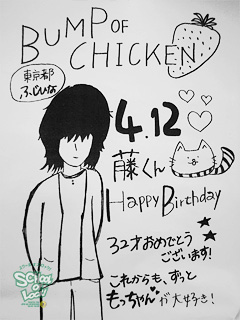 BUMP OF
CHICKEN
東京都
ふじひな
4.12
藤くん
Happy Birthday
32才おめでとう
ございます!
これからも、ずっと
もっちゃんが大好き!
SCHOOL
OF
LOCK!